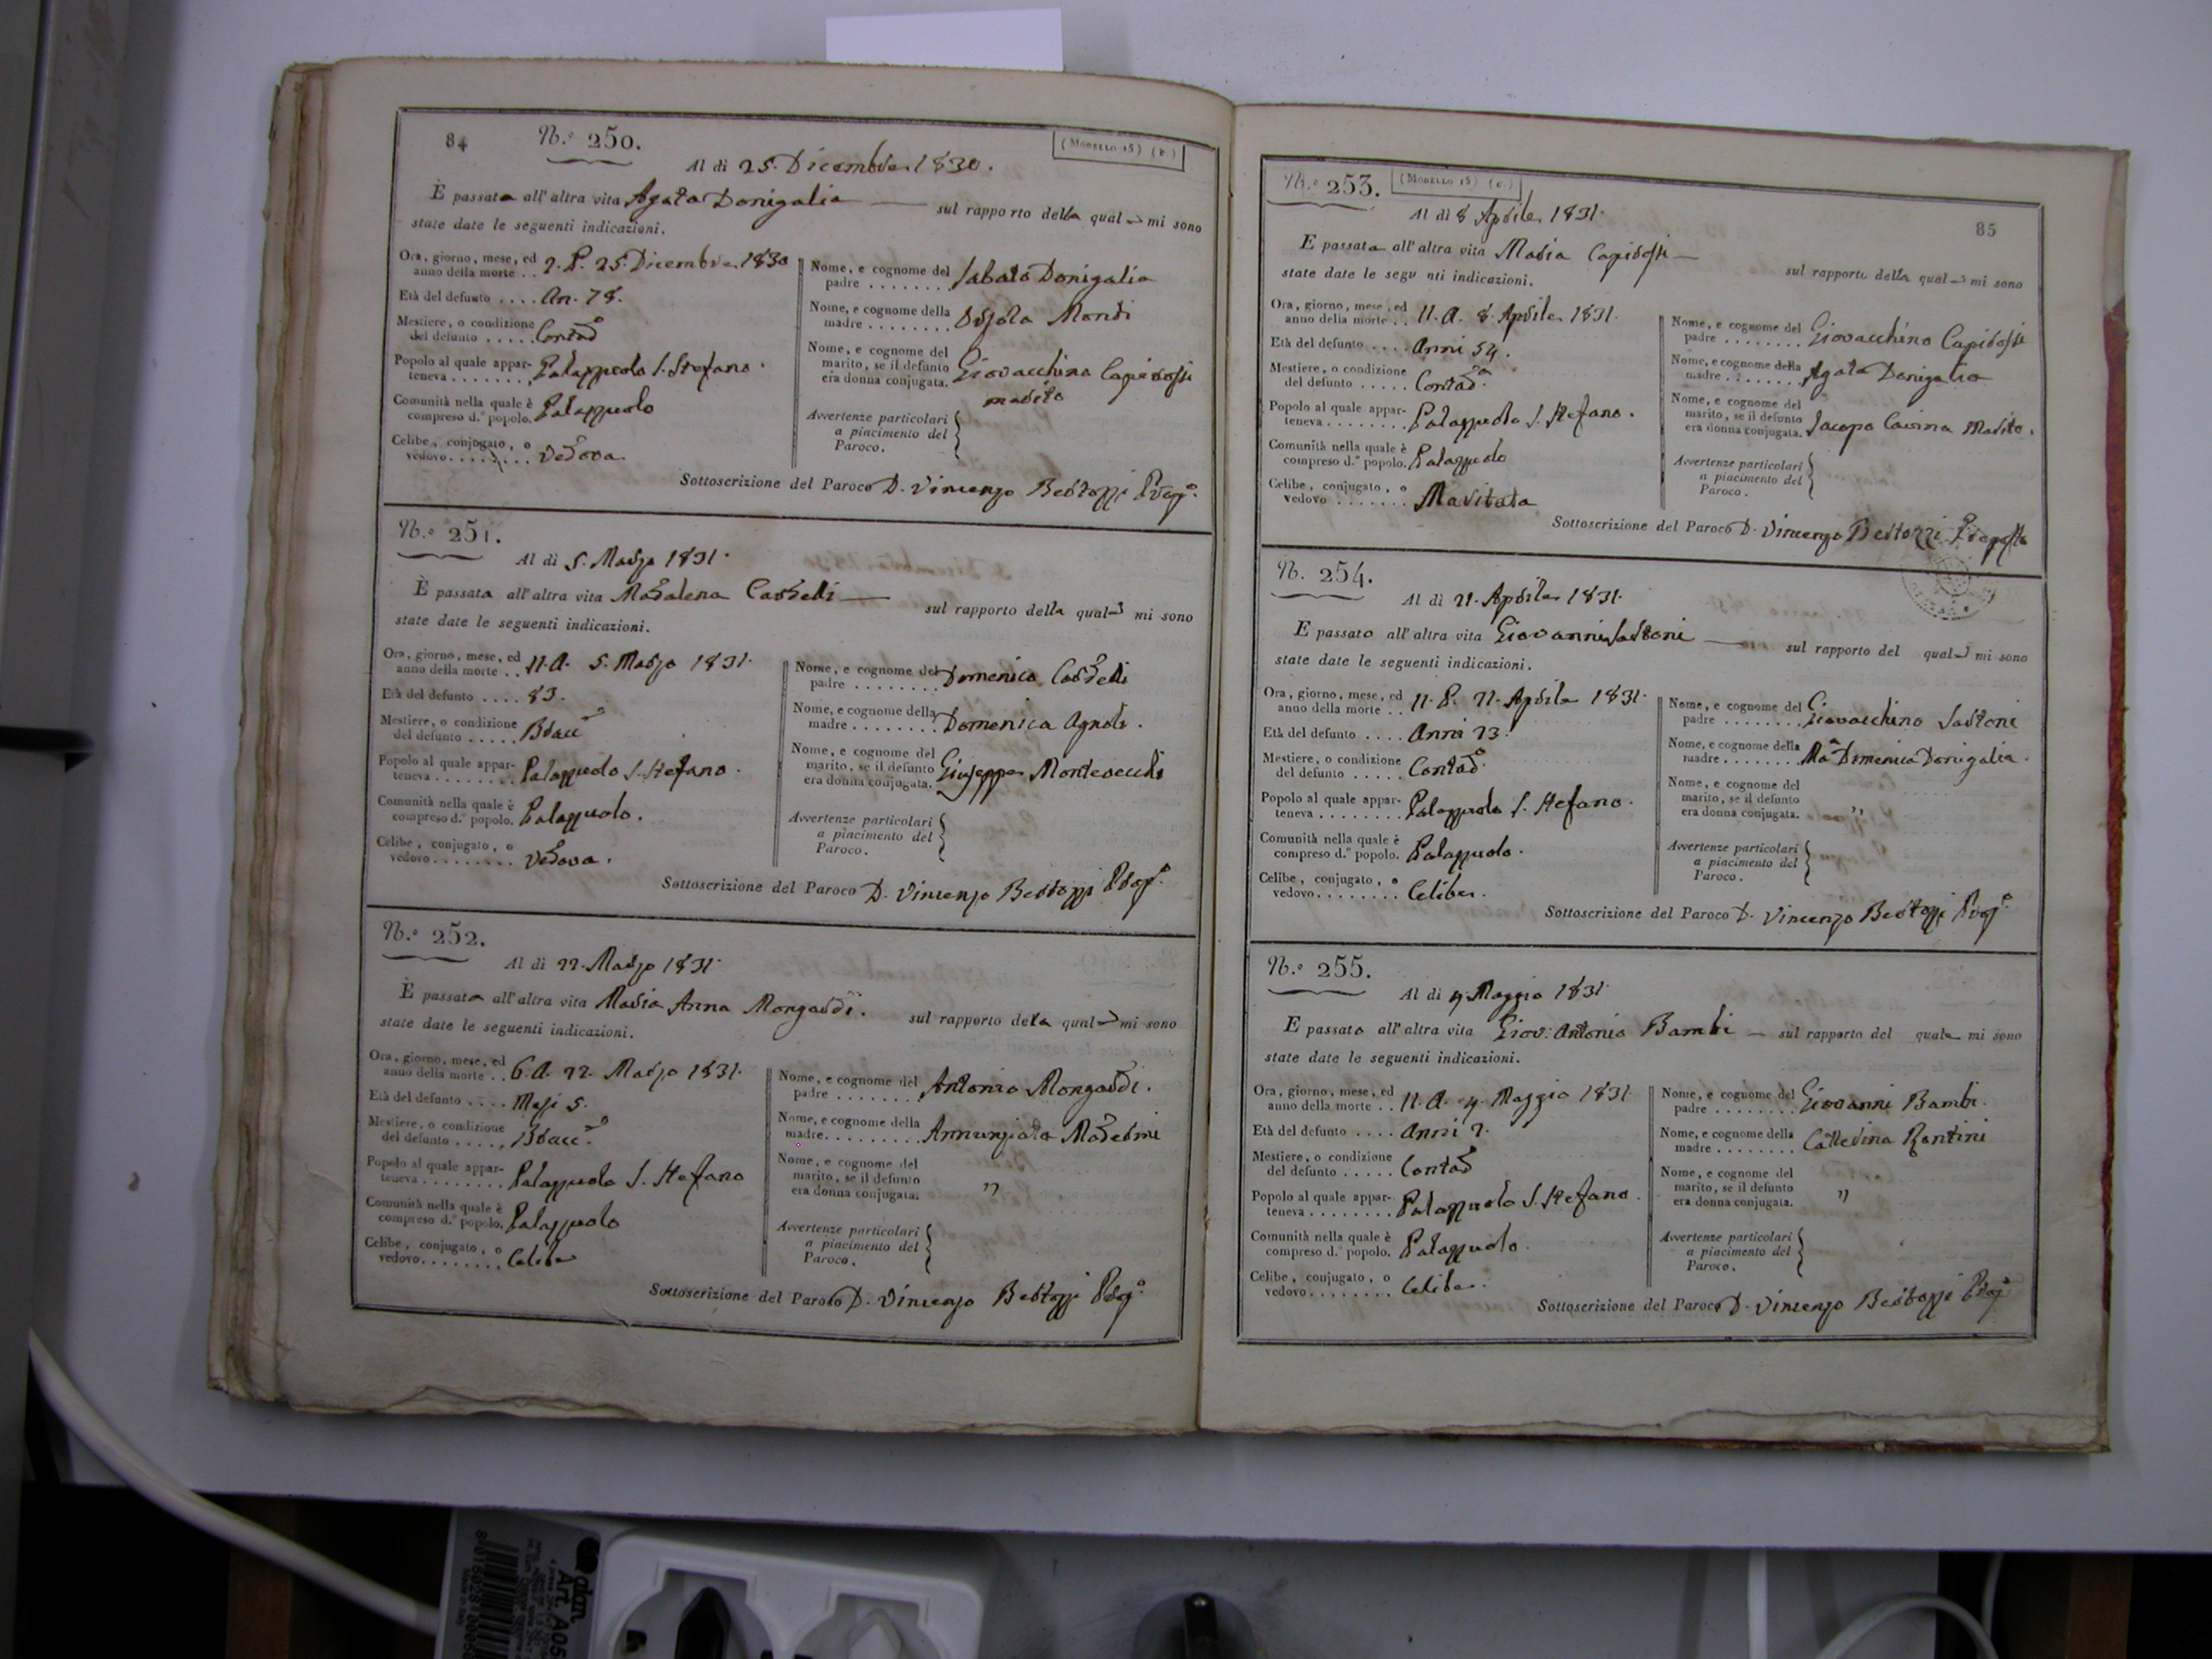 84 N.º 250. (Modello 15) (c.)
Al dì 25. Dicembre 1830.
È passata all'altra vita Agata Donigalia — sul rapporto della qual mi sono
state date le seguenti indicazioni.
Ora, giorno, mese, ed
anno della morte . . 2. P. 25. Dicembre 1830
Età del defunto . . . . An. 78.
Mestiere, o condizione
del defunto . . . . . Contad.
Popolo al quale appar-
teneva . . . . . . . Palazzuolo S. Stefano.
Comunità nella quale è
compreso d.º popolo. Palazzuolo
Celibe, conjugato, o
vedovo . . . . . . . Vedova.
Nome, e cognome del
padre . . . . . . . Sabato Donigalia
Nome, e cognome della
madre . . . . . . . . Orsola Mondi
Nome, e cognome del
marito, se il defunto
era donna conjugata. Giovacchino Capirossi
marito
Avvertenze particolari
a piacimento del
Paroco.
Sottoscrizione del Paroco D. Vincenzo Bertozzi Prop.º
N.º 251.
Al dì 5. Marzo 1831.
È passata all'altra vita Madalena Cardelli — sul rapporto della qual mi sono
state date le seguenti indicazioni.
Ora, giorno, mese, ed
anno della morte . . 11. A. 5. Marzo 1831.
Età del defunto . . . . 83.
Mestiere, o condizione
del defunto . . . . . Bracc.
Popolo al quale appar-
teneva . . . . . . . . Palazzuolo S. Stefano.
Comunità nella quale è
compreso d.º popolo. Palazzuolo.
Celibe, conjugato, o
vedovo . . . . . . . . Vedova.
Nome, e cognome del
padre . . . . . . . . Domenico Cardelli
Nome, e cognome della
madre . . . . . . . . Domenica Agnoli.
Nome, e cognome del
marito, se il defunto
era donna conjugata. Giuseppe Montevecchi
Avvertenze particolari
a piacimento del
Paroco.
Sottoscrizione del Paroco D. Vincenzo Bertozzi Prop.º
N.º 252.
Al dì 22. Marzo 1831
È passata all'altra vita Maria Anna Mongardi. sul rapporto della qual mi sono
state date le seguenti indicazioni.
Ora, giorno, mese, ed
anno della morte . . 6. A. 22. Marzo 1831.
Età del defunto . . . . Mesi 5.
Mestiere, o condizione
del defunto . . . . . Bracc.
Popolo al quale appar-
teneva . . . . . . . . Palazzuolo S. Stefano
Comunità nella quale è
compreso d.º popolo. Palazzuolo
Celibe, conjugato, o
vedovo . . . . . . . . Celibe
Nome, e cognome del
padre . . . . . . . Antonio Mongardi.
Nome, e cognome della
madre . . . . . . . . Annunziata Maderni
Nome, e cognome del
marito, se il defunto
era donna conjugata. "
Avvertenze particolari
a piacimento del
Paroco.
Sottoscrizione del Paroco D. Vincenzo Bertozzi Prop.º
N.º 253. (Modello 15) (c.)
85
Al dì 8 Aprile 1831.
E passata all'altra vita Maria Capirossi — sul rapporto della qual mi sono
state date le segu nti indicazioni.
Ora, giorno, mese, ed
anno della morte . . 11. A. 8. Aprile 1831.
Età del defunto . . . . Anni 54.
Mestiere, o condizione
del defunto . . . . . Contad.
Popolo al quale appar-
teneva . . . . . . . . Palazzuolo S. Stefano.
Comunità nella quale è
compreso d.º popolo. Palazzuolo
Celibe, conjugato, o
vedovo . . . . . . . Maritata
Nome, e cognome del
padre . . . . . . . . Giovacchino Capirossi
Nome, e cognome della
madre . . . . . . . Agata Donigalia
Nome, e cognome del
marito, se il defunto
era donna conjugata. Jacopo Marito.
Avvertenze particolari
a piacimento del
Paroco.
Sottoscrizione del Paroco D. Vincenzo Bertozzi Proposto
N. 254.
Al dì 21. Aprile 1831.
E passato all'altra vita Giovanni Sartoni — sul rapporto del qual mi sono
state date le seguenti indicazioni.
Ora, giorno, mese, ed
anno della morte . . 11. P. 21. Aprile 1831.
Età del defunto . . . . Anni 23.
Mestiere, o condizione
del defunto . . . . . Contad.
Popolo al quale appar-
teneva . . . . . . . . Palazzuolo S. Stefano.
Comunità nella quale è
compreso d.º popolo. Palazzuolo.
Celibe, conjugato, o
vedovo . . . . . . . . Celibe.
Nome, e cognome del
padre . . . . . . . . Giovacchino Sartoni
Nome, e cognome della
madre . . . . . . . . Mª Domenica Donigalia.
Nome, e cognome del
marito, se il defunto
era donna conjugata. "
Avvertenze particolari
a piacimento del
Paroco.
Sottoscrizione del Paroco D. Vincenzo Bertozzi Prop.º
N.º 255.
Al dì 4. Maggio 1831.
E passato all'altra vita Giov: Antonio Bambi — sul rapporto del quale mi sono
state date le seguenti indicazioni.
Ora, giorno, mese, ed
anno della morte . . 11. A. 4. Maggio 1831.
Età del defunto . . . . Anni 2.
Mestiere, o condizione
del defunto . . . . . Contad
Popolo al quale appar-
teneva . . . . . . . . Palazzuolo S. Stefano.
Comunità nella quale è
compreso d.º popolo. Palazzuolo.
Celibe, conjugato, o
vedovo . . . . . . . . Celibe.
Nome, e cognome del
padre . . . . . . . . Giovanni Bambi.
Nome, e cognome della
madre . . . . . . . . Catterina Rontini
Nome, e cognome del
marito, se il defunto
era donna conjugata. "
Avvertenze particolari
a piacimento del
Paroco.
Sottoscrizione del Paroco D. Vincenzo Bertozzi Prop.º
adam
Art. A05